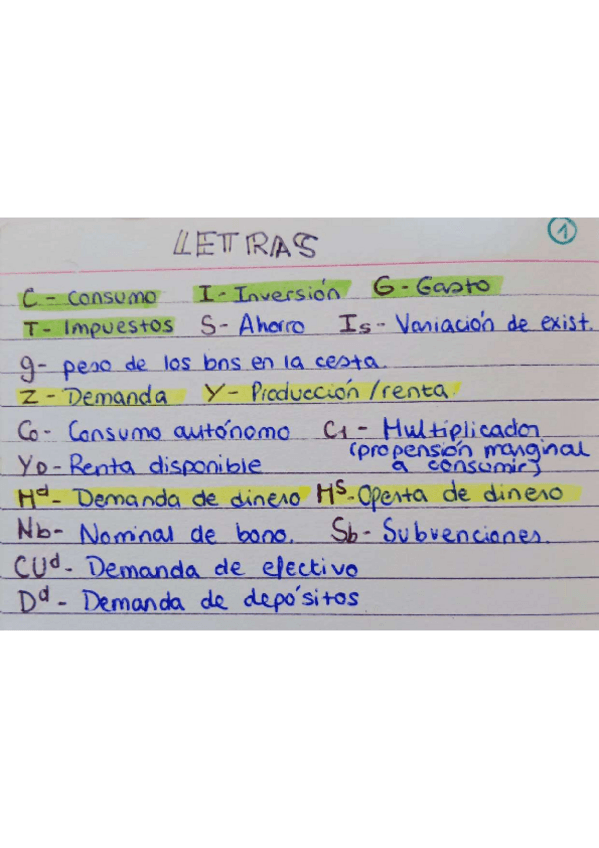 LETRAS 1
C - Consumo I - Inversión G - Gasto
T - Impuestos S - Ahorro Is - Variación de exist.
g - peso de los bns en la cesta.
Z - Demanda Y - Producción/renta
C0 - Consumo autónomo C1 - Multiplicador
(propensión marginal
YD - Renta disponible a consumir)
Md - Demanda de dinero Ms - Oferta de dinero
Nb - Nominal de bono. Sb - Subvenciones.
CUd - Demanda de efectivo
Dd - Demanda de depósitos